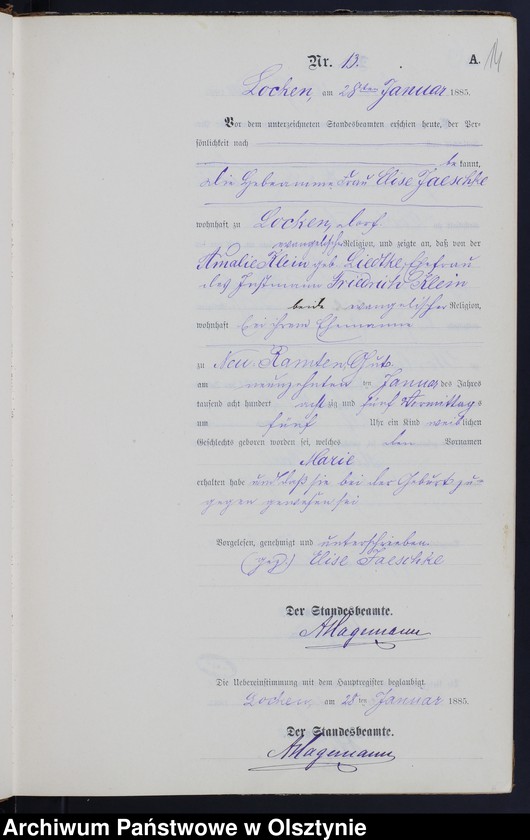 14
Nr. 13. A.
Lochen, am 28ten Januar 1885.
Vor dem unterzeichneten Standesbeamten erschien heute, der Per-
sönlichkeit nach
be kannt,
die Hebamme Frau Elise Jaeschke
wohnhaft zu Lochen, Dorf
evangelischer Religion, und zeigte an, daß von der
Amalie Klein geb. Liedtke, Ehefrau
des Instmann Friedrich Klein
beide evangelischer Religion,
wohnhaft bei ihrem Ehemanne
zu Neu Ramten, Gut
am neunzehnten ten Januar des Jahres
tausend acht hundert achtzig und fünf Vormittags
um fünf Uhr ein Kind weiblichen
Geschlechts geboren worden sei, welches den Vornamen
Marie
erhalten habe und daß sie bei der Geburt zu-
gegen gewesen sei
Vorgelesen, genehmigt und unterschrieben.
(gez.) Elise Jaeschke
Der Standesbeamte.
AHagemann
Die Uebereinstimmung mit dem Hauptregister beglaubigt
Lochen, am 28ten Januar 1885.
Der Standesbeamte.
AHagemann
Archiwum Państwowe w Olsztynie